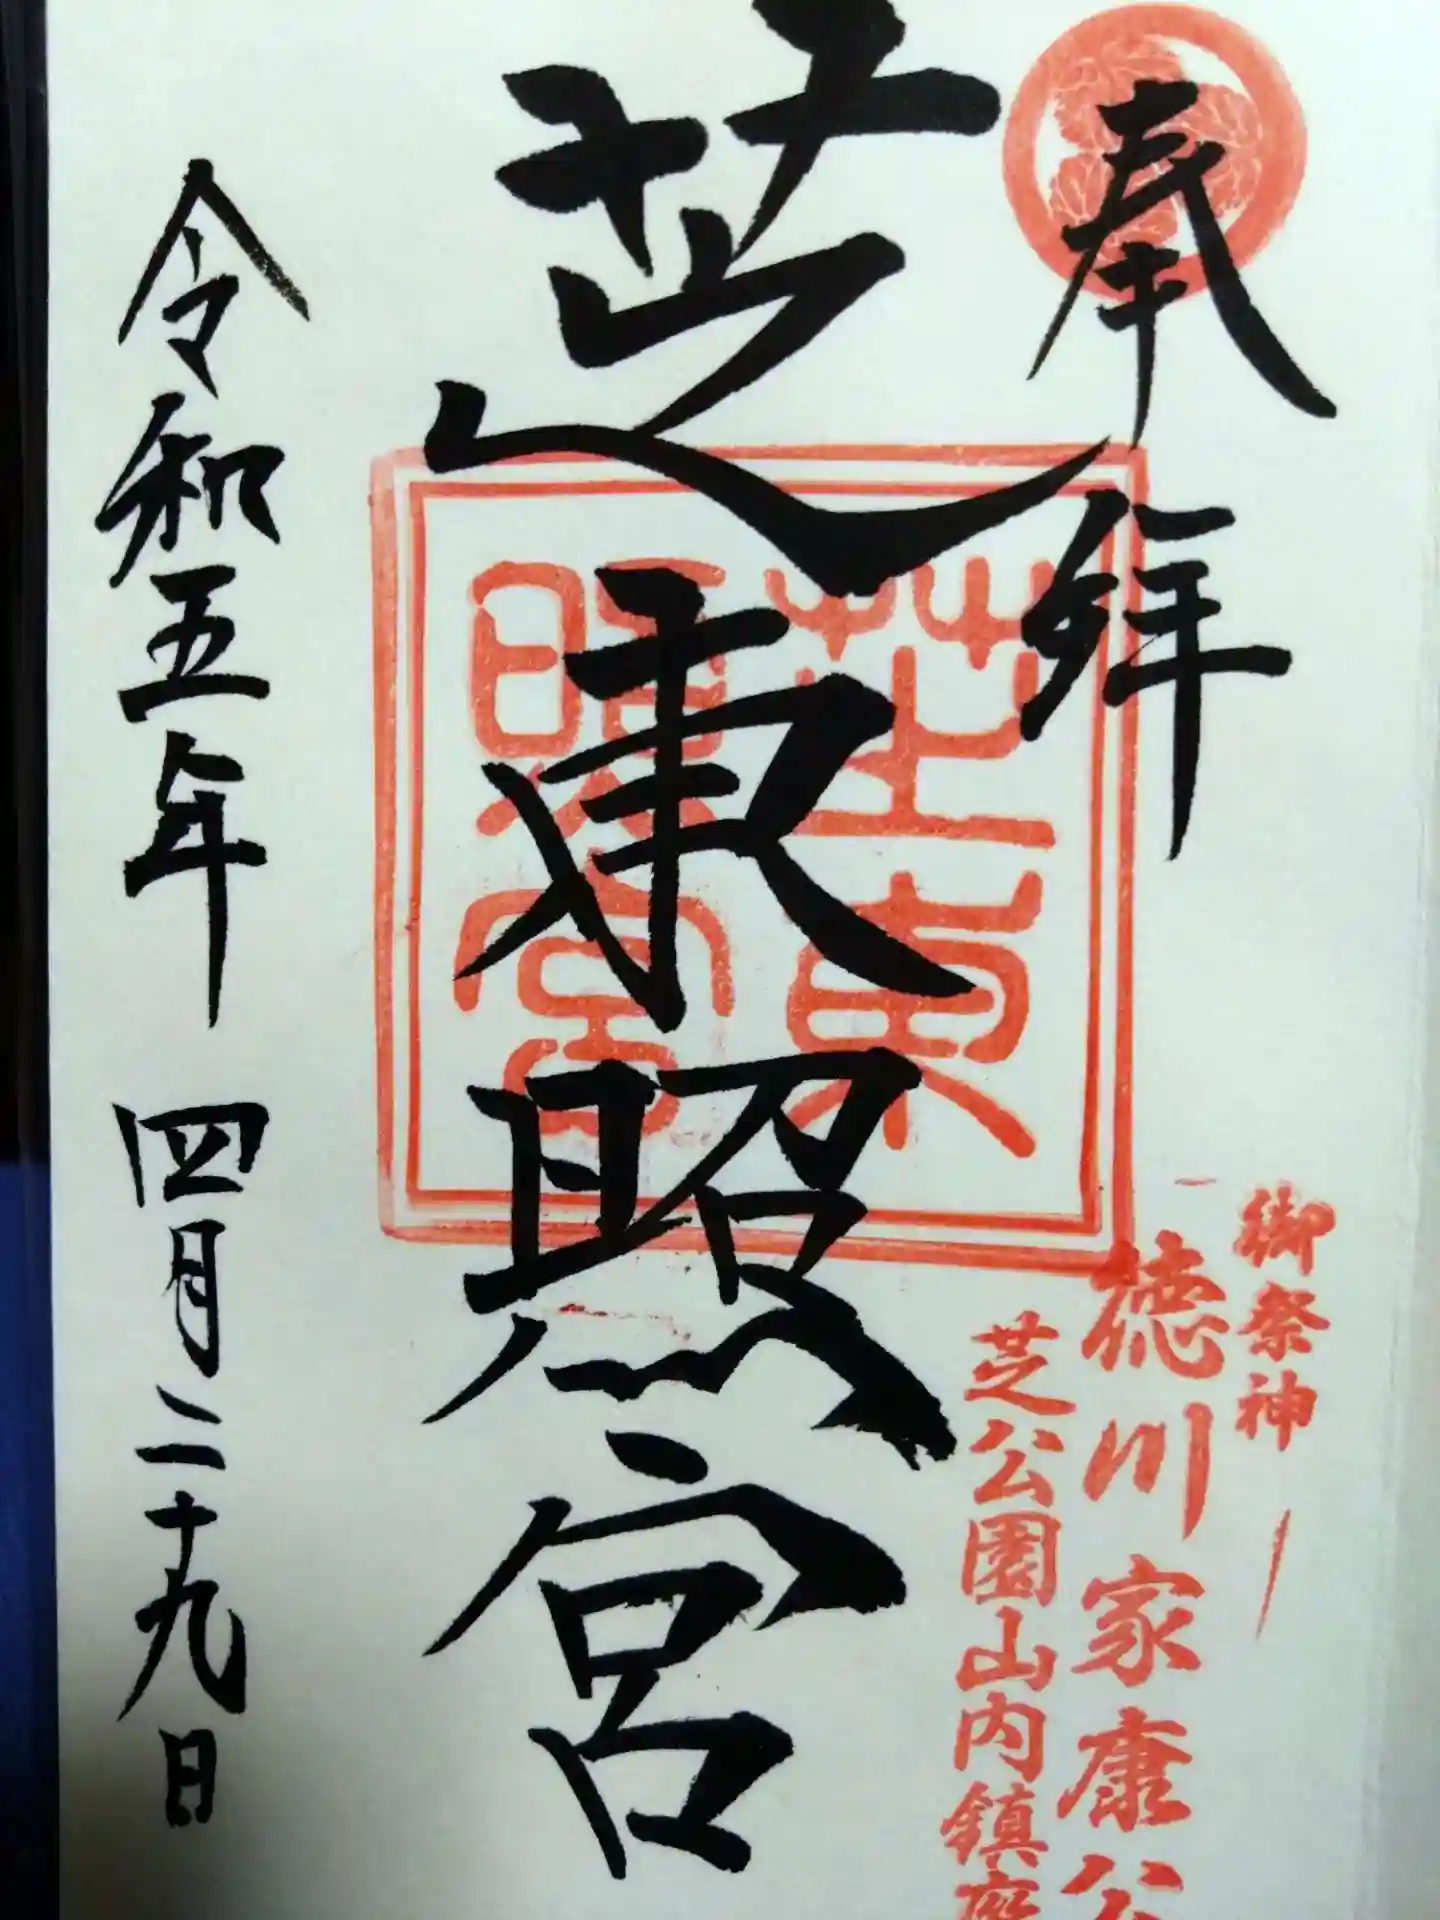 奉拝
御祭神
徳川家康公
芝公園山内鎮座
芝東照宮
芝東照宮
令和五年 四月二十九日